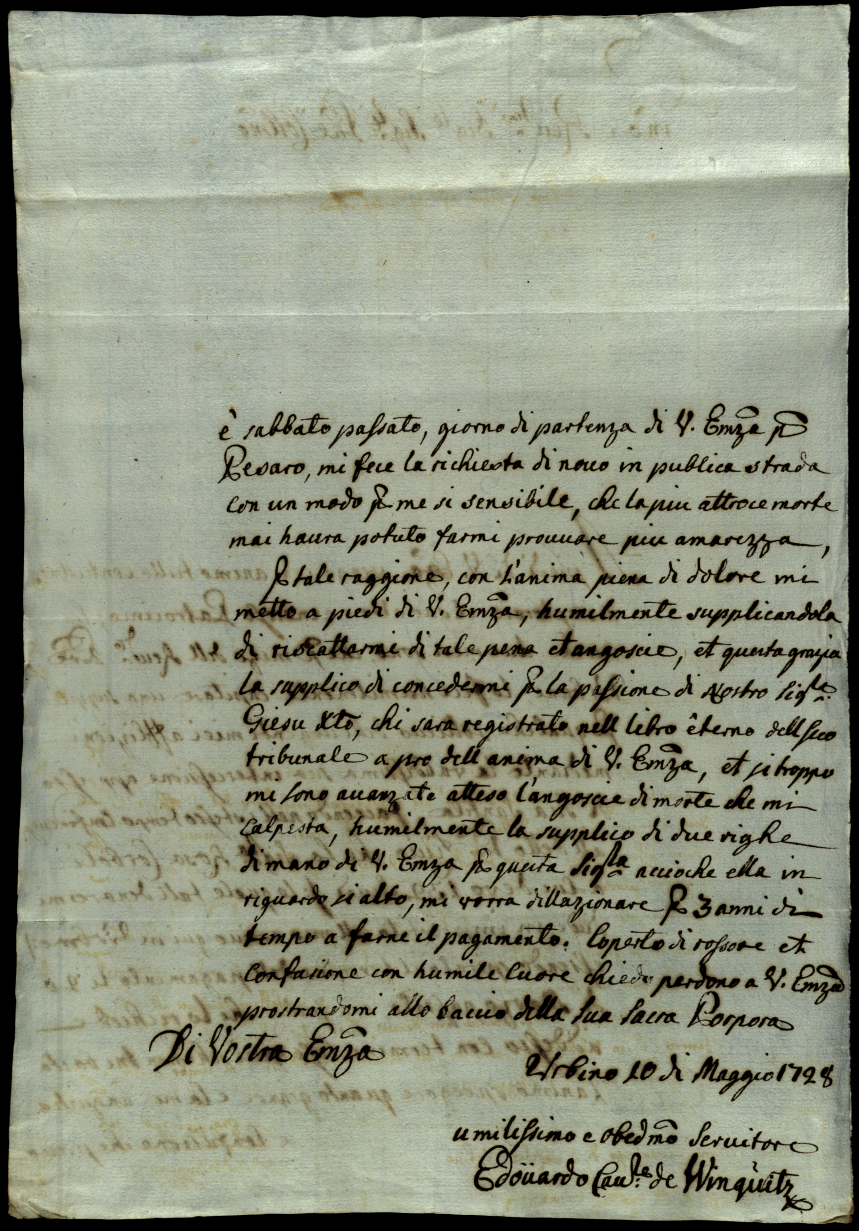 è sabbato passato, giorno di partenza di V. Emza p
Pesaro, mi fece la richiesta di novo in publica strada
con un modo p me si sensibile, che la piu attroce morte
mai haura potuto farmi prouuare piu amarezza,
p tale raggione, con l'anima piena di dolore mi
metto a piedi di V. Emza, humilmente supplicandola
di riscattarmi di tale pena et angoscie, et questa grazia
la supplico di concedermi p la passione di Nostro Sigre
Giesu Xto, chi sara registrato nell libro êterno dell suo
tribunale a pro dell anima di V. Emza, et si troppo
mi sono auanzate atteso l'angoscie di morte che mi
calpesta, humilmente la supplico di due righe
di mano di V. Emza p questa Sigla accioche ella in
riguardo si alto, mi vorra dillazionare p 3 anni di
tempo a farne il pagamento. Coperto di rossore et
Confusione con humile Cuore chiedo perdono a V. Emza
prostrandomi allo baccio della Sua Sacra Porpora
Di Vostra Emza
Urbino 10 di Maggio 1728
umilissimo e obedmo Seruitore
Edoüardo Caule de Winqüitz